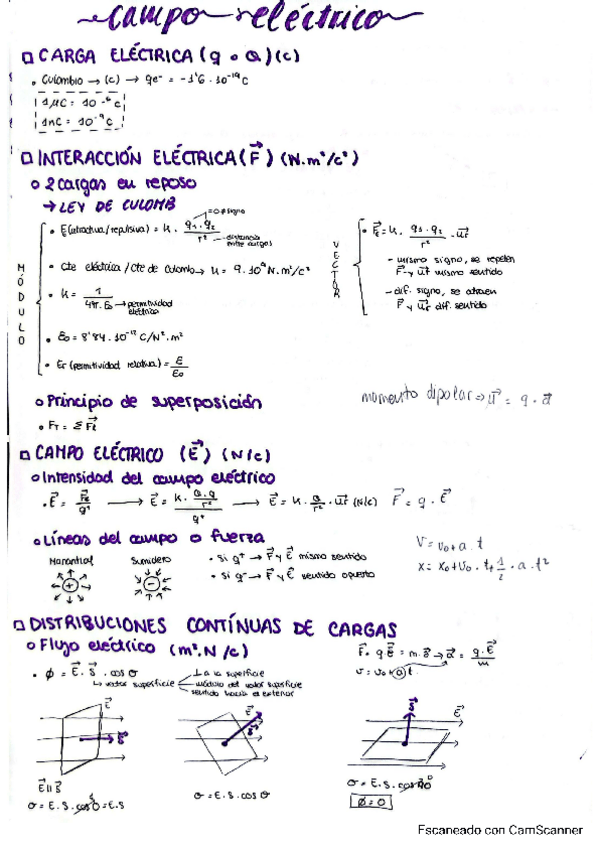 campo eléctrico
CARGA ELÉCTRICA (q o Q) (C)
• Culombio → (C) → qe⁻ = -1'6 · 10⁻¹⁹ C
1μC = 10⁻⁶ C
1nC = 10⁻⁹ C
INTERACCIÓN ELÉCTRICA (F⃗) (N.m²/c²)
o 2 cargas en reposo
→ LEY DE CULOMB
MÓDULO
• F(atractiva/repulsiva) = K · q₁·q₂ / r²
signo
distancia entre cargas
• Cte eléctrica / Cte de Culomb → K = 9·10⁹ N.m²/c²
• K = 1 / 4π·ε₀ → permitividad eléctrica
• ε₀ = 8'84 · 10⁻¹² C/N².m²
• εr (permitividad relativa) = ε / ε₀
VECTOR
• F⃗ = K · q₁·q₂ / r² · u⃗r
- mismo signo, se repelen
F⃗ y u⃗r mismo sentido
- dif. signo, se atraen
F⃗ y u⃗r dif. sentido
o Principio de superposición
• FT = Σ F⃗i
momento dipolar ⇒ = q · d⃗
CAMPO ELÉCTRICO (E⃗) (N/C)
o Intensidad del campo eléctrico
• E⃗ = F⃗e / q⁺ → E⃗ = K · Q·q / r² / q⁺ → E⃗ = K · Q / r² · u⃗r (N/C) F⃗ = q · E⃗
o Líneas del campo o fuerza
Manantial
Sumidero
• Si q⁺ → F⃗ y E⃗ mismo sentido
• Si q⁻ → F⃗ y E⃗ sentido opuesto
V = V₀ + a · t
x = x₀ + v₀ · t + 1/2 · a · t²
DISTRIBUCIONES CONTÍNUAS DE CARGAS
o Flujo eléctrico (m².N/C)
• ϕ = E⃗ · S⃗ · cos σ
↳ vector superficie
⊥ a la superficie
módulo del vector superficie
sentido hacia el exterior
F = q E⃗ = m · a⃗ → a⃗ = q·E⃗ / m
v = v₀ + a t
E⃗
S⃗
E⃗
S⃗
S⃗
E⃗
E⃗ || S⃗
σ = E.S.cos 0 = E.S
σ = E.S.cos σ
σ = E.S.cos 90°
ϕ = 0
Escaneado con CamScanner